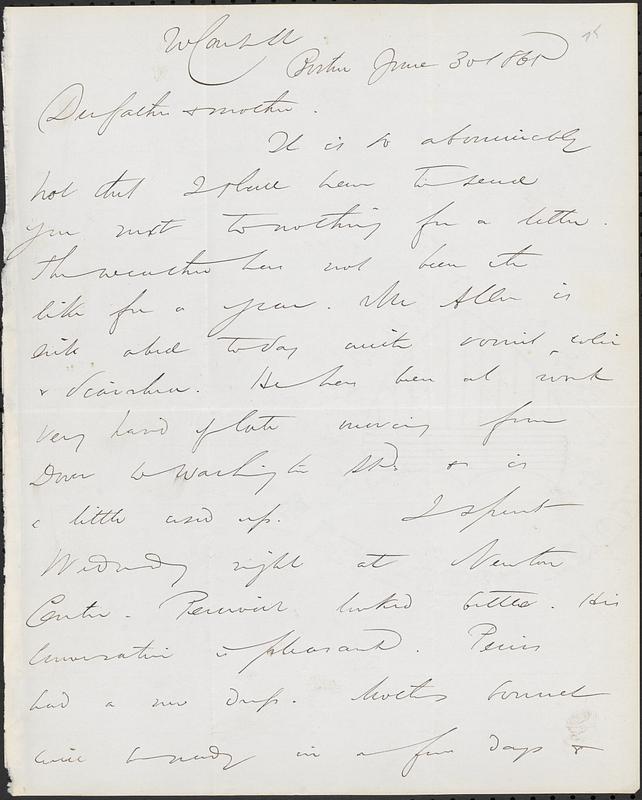 Boston June 30 186
Dear father & mother.
It is so abominably
hot that I shall have to send
you next to nothing for a letter.
The weather has not been the
like for a year. Mr Allen is
sick abed today with vomit, colic
& diarrhea. He has been at work
very hard of late moving from
Dover to Washington Std. & is
a little used up. I spent
Wednesday night at Newton
Centre. Percival looked better. His
conversation is pleasant.
had a new dress. Mothers bonnet
will be ready in a few days &